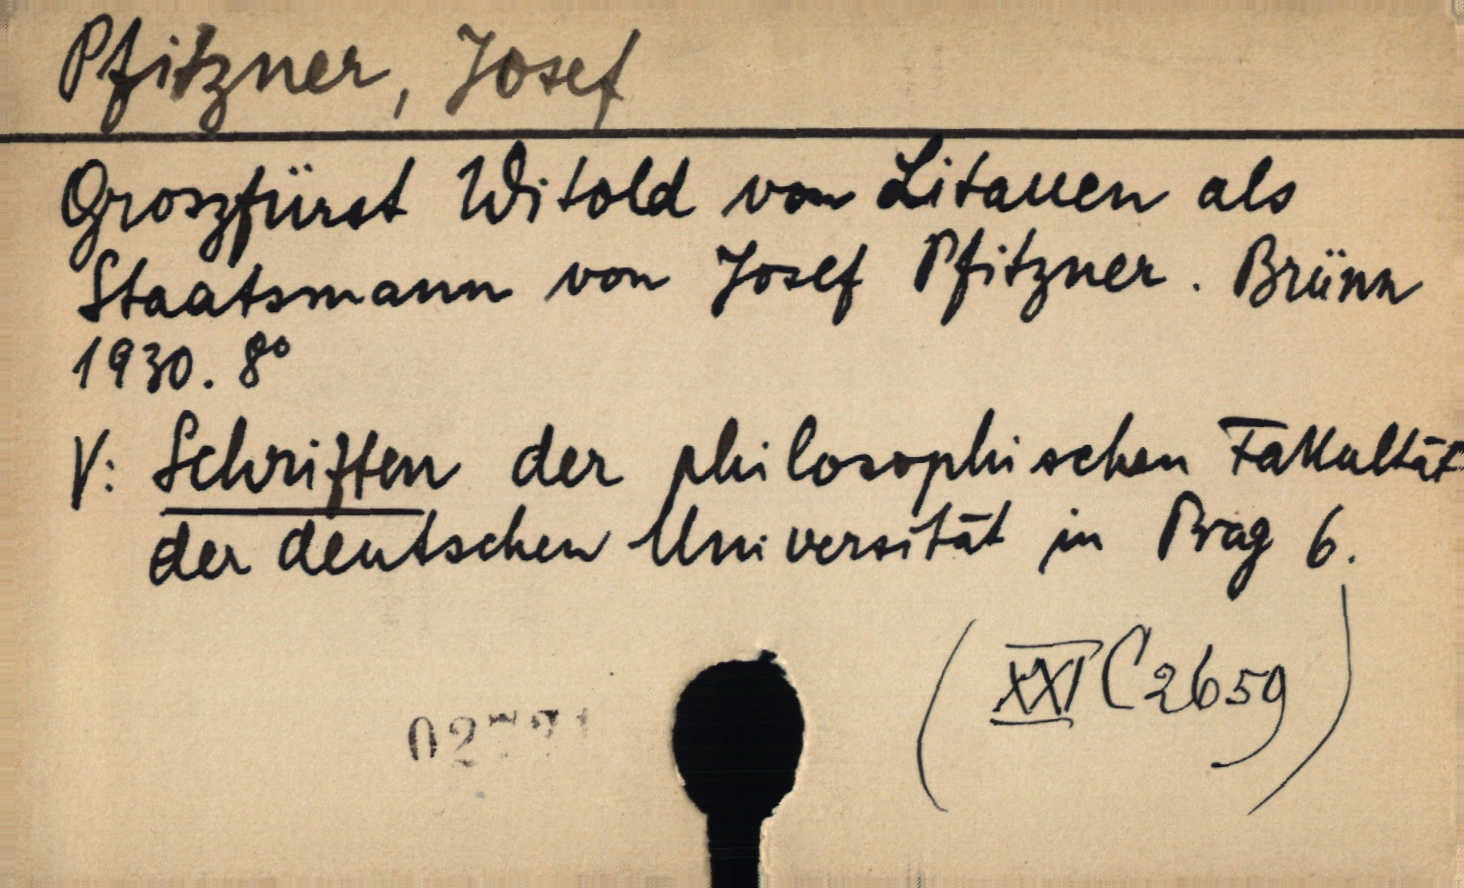 Pfitzner, Josef
Groszfürst Witold von Litauen als
Staatsmann von Josef Pfitzner. Brünn
1930. 8°
V: Schriften der philosophischen Fakultät
der deutschen Universität in Prag 6.
(XXI C 2659)